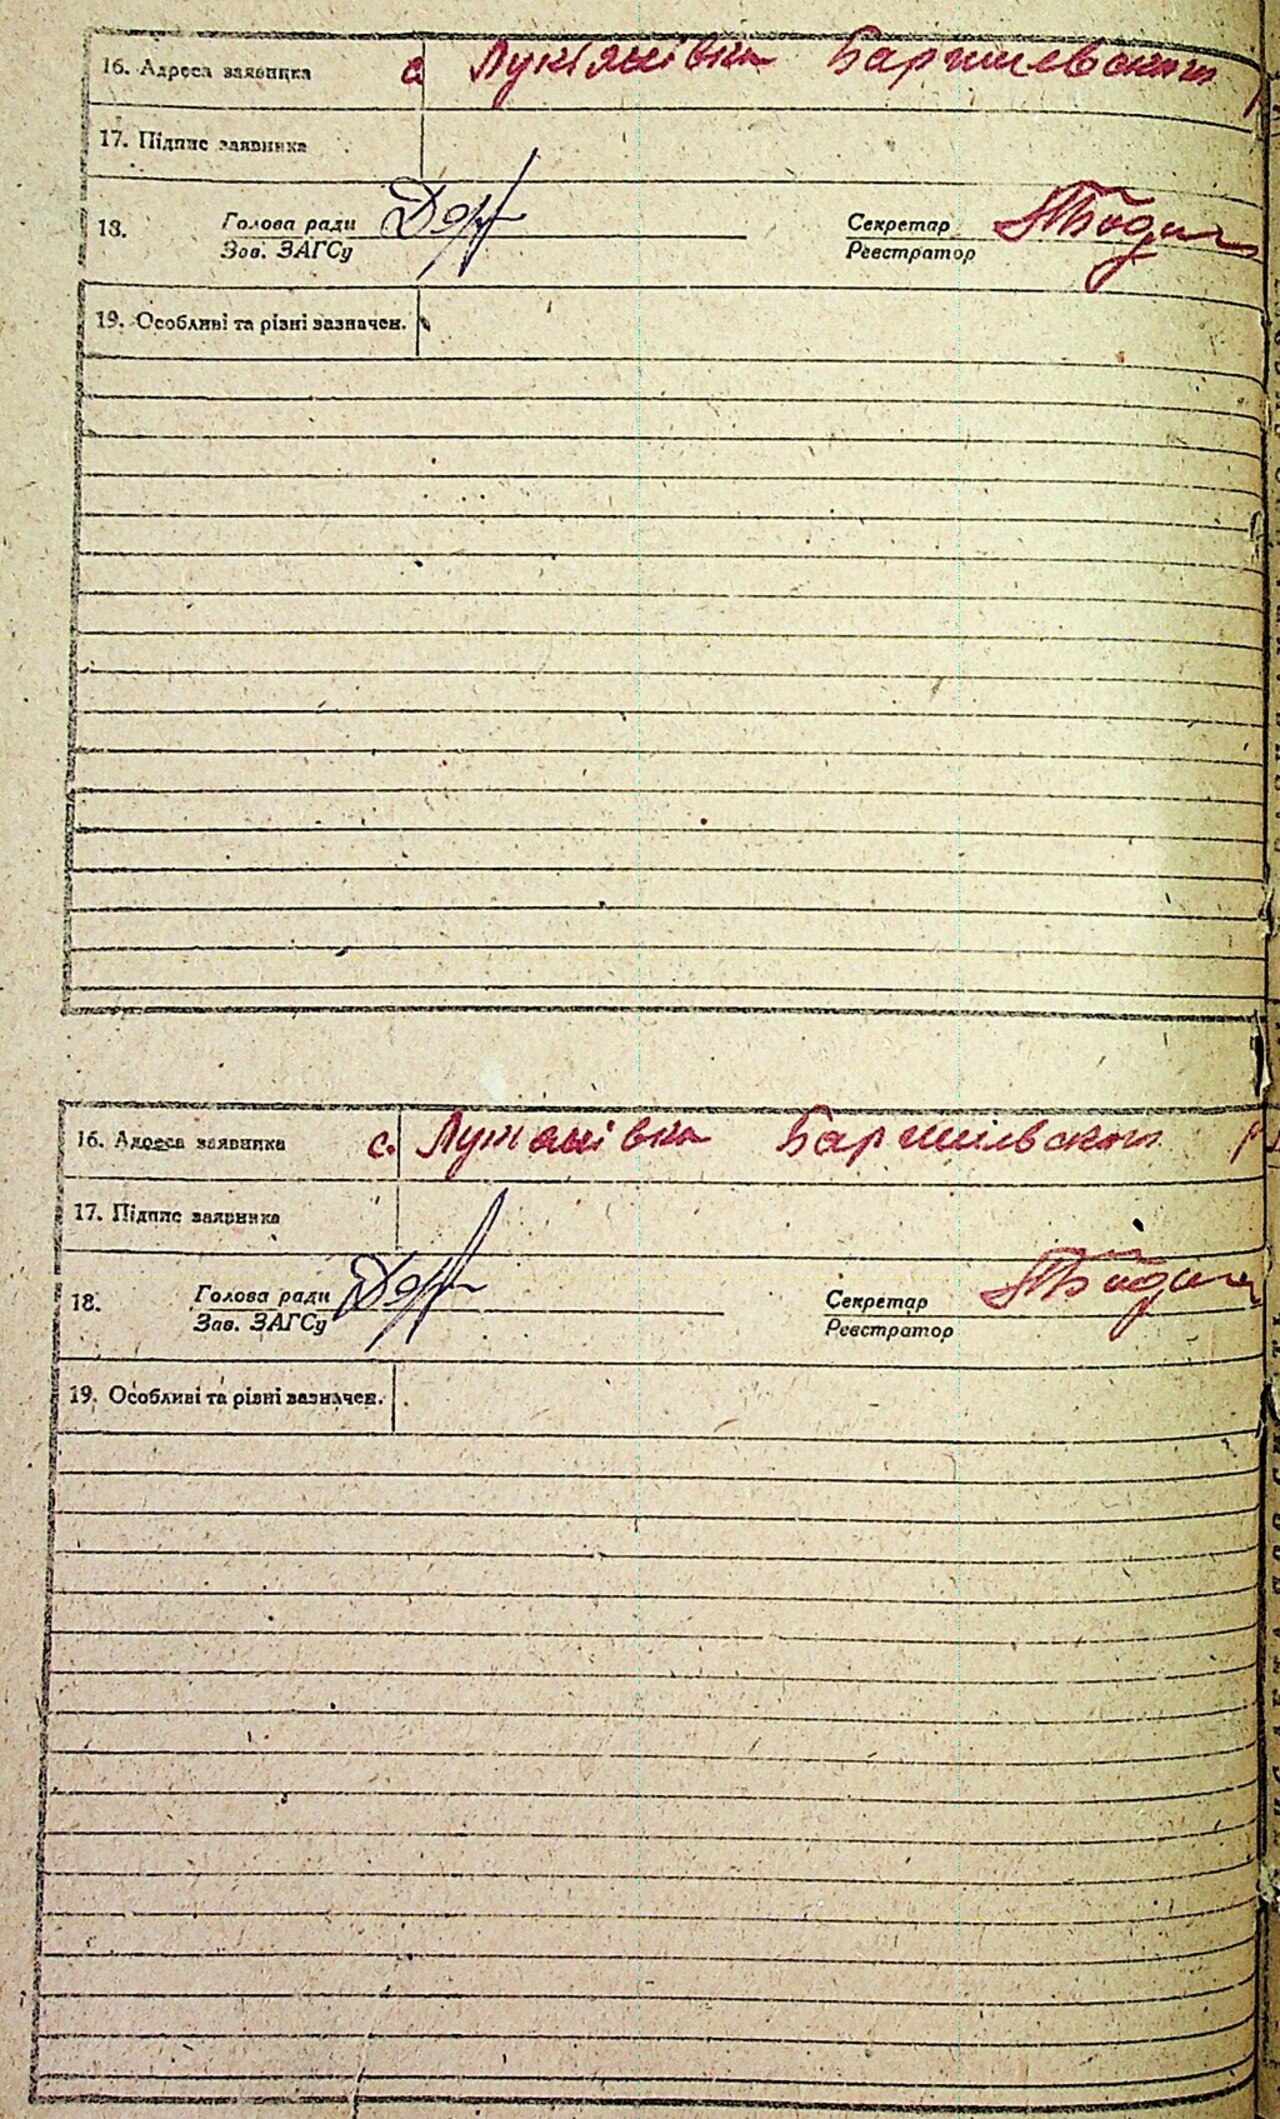 16. Адреса заявника с. Лукіянівка Баришевського р
17. Підпис заявника
18. Голова ради Секретар
Зав. ЗАГСу Реєстратор
19. Особливі та різні зазначен.
16. Адреса заявника с. Лукянівка Баришівського р
17. Підпис заявника
18. Голова ради Секретар
Зав. ЗАГСу Реєстратор
19. Особливі та різні зазначен.